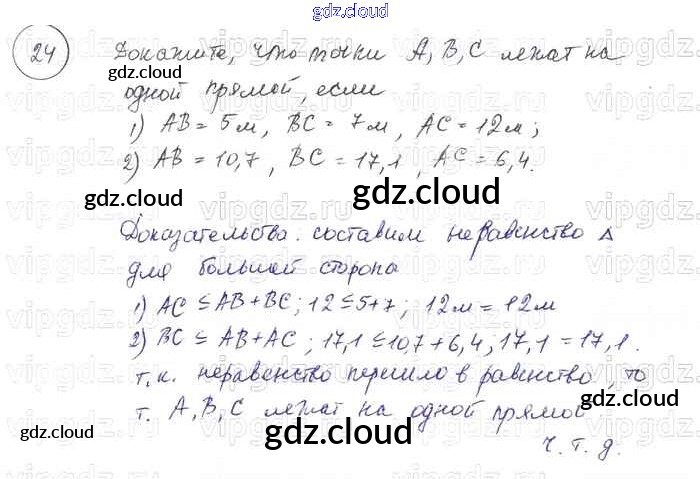 gdz.cloud
24 Докажите, что точки A, B, C лежат на
gdz.cloud
одной прямой, если
1) AB = 5м, BC = 7м, AC = 12м;
2) AB = 10,7, BC = 17,1, AC = 6,4.
gdz.cloud
gdz.cloud
gdz.cloud
Доказательства: составим неравенство Δ
для большей стороны
gdz.cloud
1) AC ≤ AB + BC; 12 ≤ 5+7; 12м = 12м
2) BC ≤ AB + AC; 17,1 ≤ 10,7 + 6,4; 17,1 = 17,1.
т.к. неравенство перешло в равенство, то
т. A, B, C лежат на одной прямой
gdz.cloud
gdz.cloud
gdz.cloud
ч.т.д.